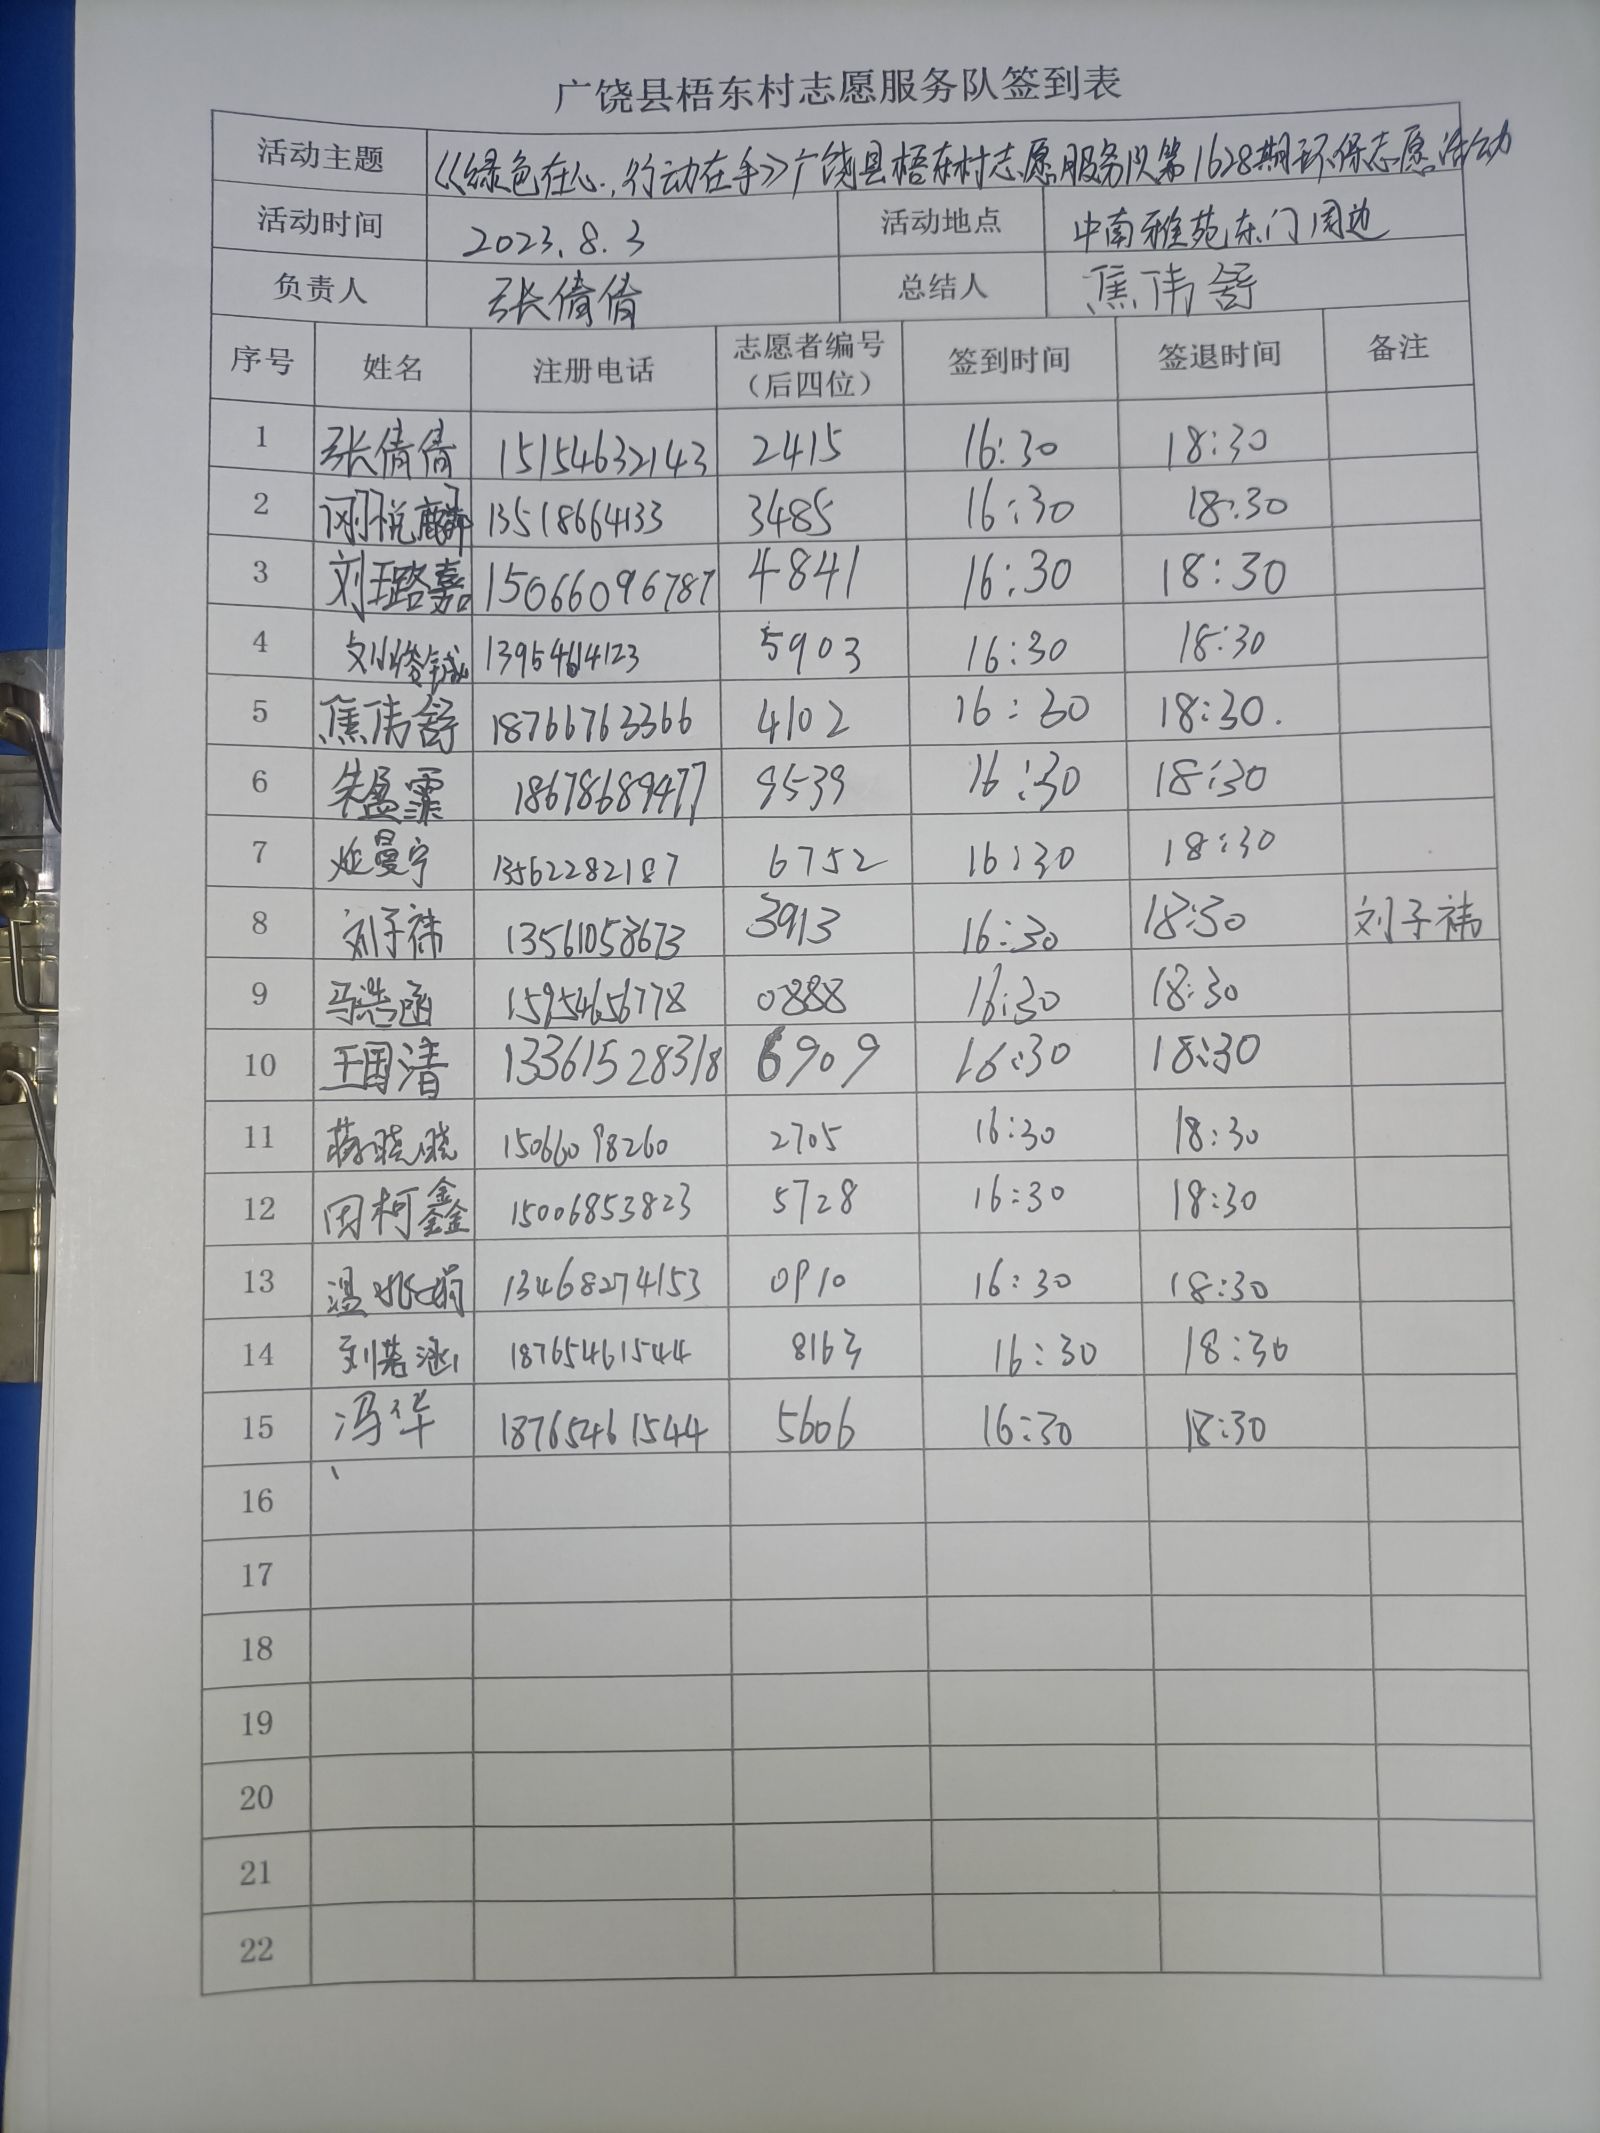 广饶县梧东村志愿服务队签到表
活动主题 《绿色在心,行动在手》广饶县梧东村志愿服务队第1628期环保志愿活动
活动时间 2023.8.3 活动地点 中南雅苑东门周边
负责人 张倩倩 总结人 焦伟舒
序号 姓名 注册电话 志愿者编号 签到时间 签退时间 备注
（后四位）
1 张倩倩 15154632143 2415 16:30 18:30
2 13518664133 3485 16:30 18:30
3 刘璐嘉 15066096787 4841 16:30 18:30
4 刘俊铖 5903 16:30 18:30
5 焦伟舒 18766763366 4102 16:30 18:30.
6 朱孟霏 18678689477 9539 16:30 18:30
7 13562282187 6752 16:30 18:30
8 刘子祎 13561058673 3913 16:30 18:30 刘子祎
9 马浩函 15954656778 0888 16:30 18:30
10 王国清 13361528318 6909 16:30 18:30
11 蒋晓晓 15066098260 2705 16:30 18:30
12 柯鑫 15006853823 5728 16:30 18:30
13 温 13468274153 0910 16:30 18:30
14 刘若涵 18765461544 8163 16:30 18:30
15 冯华 18765461544 5606 16:30 18:30
16
17
18
19
20
21
22